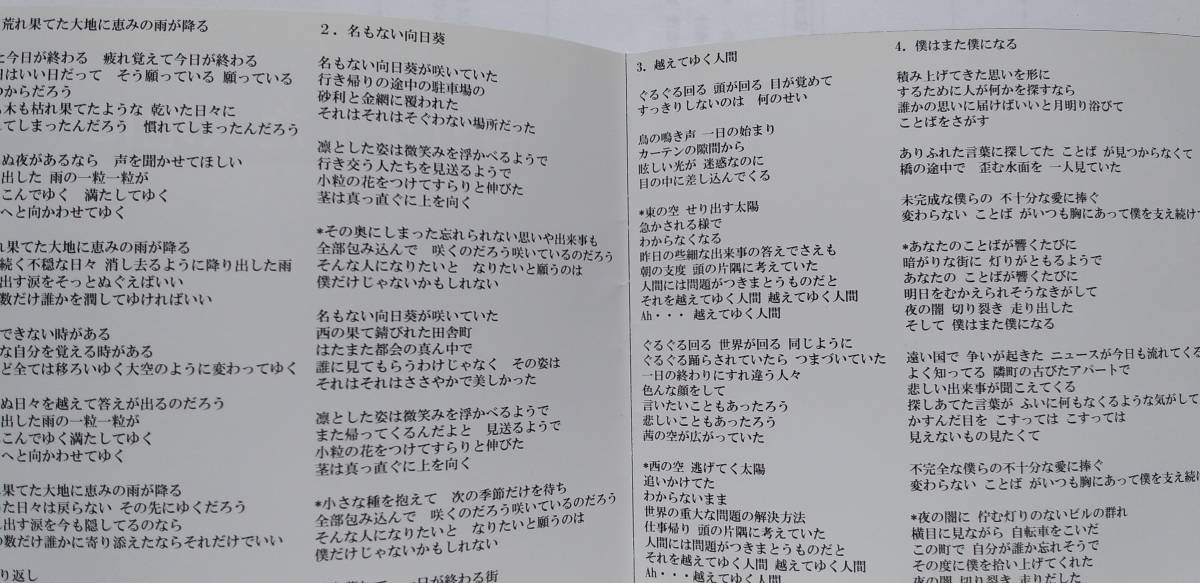 荒れ果てた大地に恵みの雨が降る
今日が終わる　疲れ覚えて今日が終わる
はいい日だって　そう願っている 願っている
からだろう
も木も枯れ果てたような 乾いた日々に
てしまったんだろう　慣れてしまったんだろう
ぬ夜があるなら　声を聞かせてほしい
出した 雨の一粒一粒が
こんでゆく　満たしてゆく
へと向かわせてゆく
れ果てた大地に恵みの雨が降る
続く不穏な日々 消し去るように降り出した雨
出す涙をそっとぬぐえばいい
数だけ誰かを潤してゆければいい
できない時がある
な自分を覚える時がある
ど全ては移ろいゆく大空のように変わってゆく
ぬ日々を越えて答えが出るのだろう
出した雨の一粒一粒が
こんでゆく満たしてゆく
へと向かわせてゆく
果てた大地に恵みの雨が降る
た日々は戻らない その先にゆくだろう
れ出す涙を今も隠してるのなら
の数だけ誰かに寄り添えたならそれだけでいい
り返し
2．名もない向日葵
名もない向日葵が咲いていた
行き帰りの途中の駐車場の
砂利と金網に覆われた
それはそれはそぐわない場所だった
凛とした姿は微笑みを浮かべるようで
行き交う人たちを見送るようで
小粒の花をつけてすらりと伸びた
茎は真っ直ぐに上を向く
*その奥にしまった忘れられない思いや出来事も
全部包み込んで　咲くのだろう咲いているのだろう
そんな人になりたいと　なりたいと願うのは
僕だけじゃないかもしれない
名もない向日葵が咲いていた
西の果て錆びれた田舎町
はたまた都会の真ん中で
誰に見てもらうわけじゃなく　その姿は
それはそれはささやかで美しかった
凛とした姿は微笑みを浮かべるようで
また帰ってくるんだよと　見送るようで
小粒の花をつけてすらりと伸びた
茎は真っ直ぐに上を向く
*小さな種を抱えて　次の季節だけを待ち
全部包み込んで　咲くのだろう咲いているのだろう
そんな人になりたいと　なりたいと願うのは
僕だけじゃないかもしれない
一日が終わる街
3．越えてゆく人間
ぐるぐる回る 頭が回る 目が覚めて
すっきりしないのは　何のせい
鳥の鳴き声 一日の始まり
カーテンの隙間から
眩しい光が 迷惑なのに
目の中に差し込んでくる
*東の空 せり出す太陽
急かされる様で
わからなくなる
昨日の些細な出来事の答えでさえも
朝の支度 頭の片隅に考えていた
人間には問題がつきまとうものだと
それを越えてゆく人間 越えてゆく人間
Ah・・・ 越えてゆく人間
ぐるぐる回る 世界が回る 同じように
ぐるぐる踊らされていたら つまづいていた
一日の終わりにすれ違う人々
色んな顔をして
言いたいこともあったろう
悲しいこともあったろう
茜の空が広がっていた
*西の空 逃げてく太陽
追いかけてた
わからないまま
世界の重大な問題の解決方法
仕事帰り 頭の片隅に考えていた
人間には問題がつきまとうものだと
それを越えてゆく人間 越えてゆく人間
Ah・・・越えてゆく人間
4．僕はまた僕になる
積み上げてきた思いを形に
するために人が何かを探すなら
誰かの思いに届けばいいと月明り浴びて
ことばをさがす
ありふれた言葉に探してた ことば が見つからなくて
橋の途中で　歪む水面を 一人見ていた
未完成な僕らの 不十分な愛に捧ぐ
変わらない ことば がいつも胸にあって僕を支え続け
*あなたのことばが響くたびに
暗がりな街に 灯りがともるようで
あなたの ことばが響くたびに
明日をむかえられそうなきがして
夜の闇 切り裂き 走り出した
そして 僕はまた僕になる
遠い国で 争いが起きた ニュースが今日も流れてくる
よく知ってる 隣町の古びたアパートで
悲しい出来事が聞こえてくる
探しあてた言葉が ふいに何もなくなるような気がして
かすんだ目を こすっては こすっては
見えないもの見たくて
不完全な僕らの不十分な愛に捧ぐ
変わらない ことば がいつも胸にあって僕を支え続
*夜の闇に 佇む灯りのないビルの群れ
横目に見ながら 自転車をこいだ
この町で 自分が誰か忘れそうで
その度に僕を拾い上げてくれた
夜の闇 切り裂き 走りだした